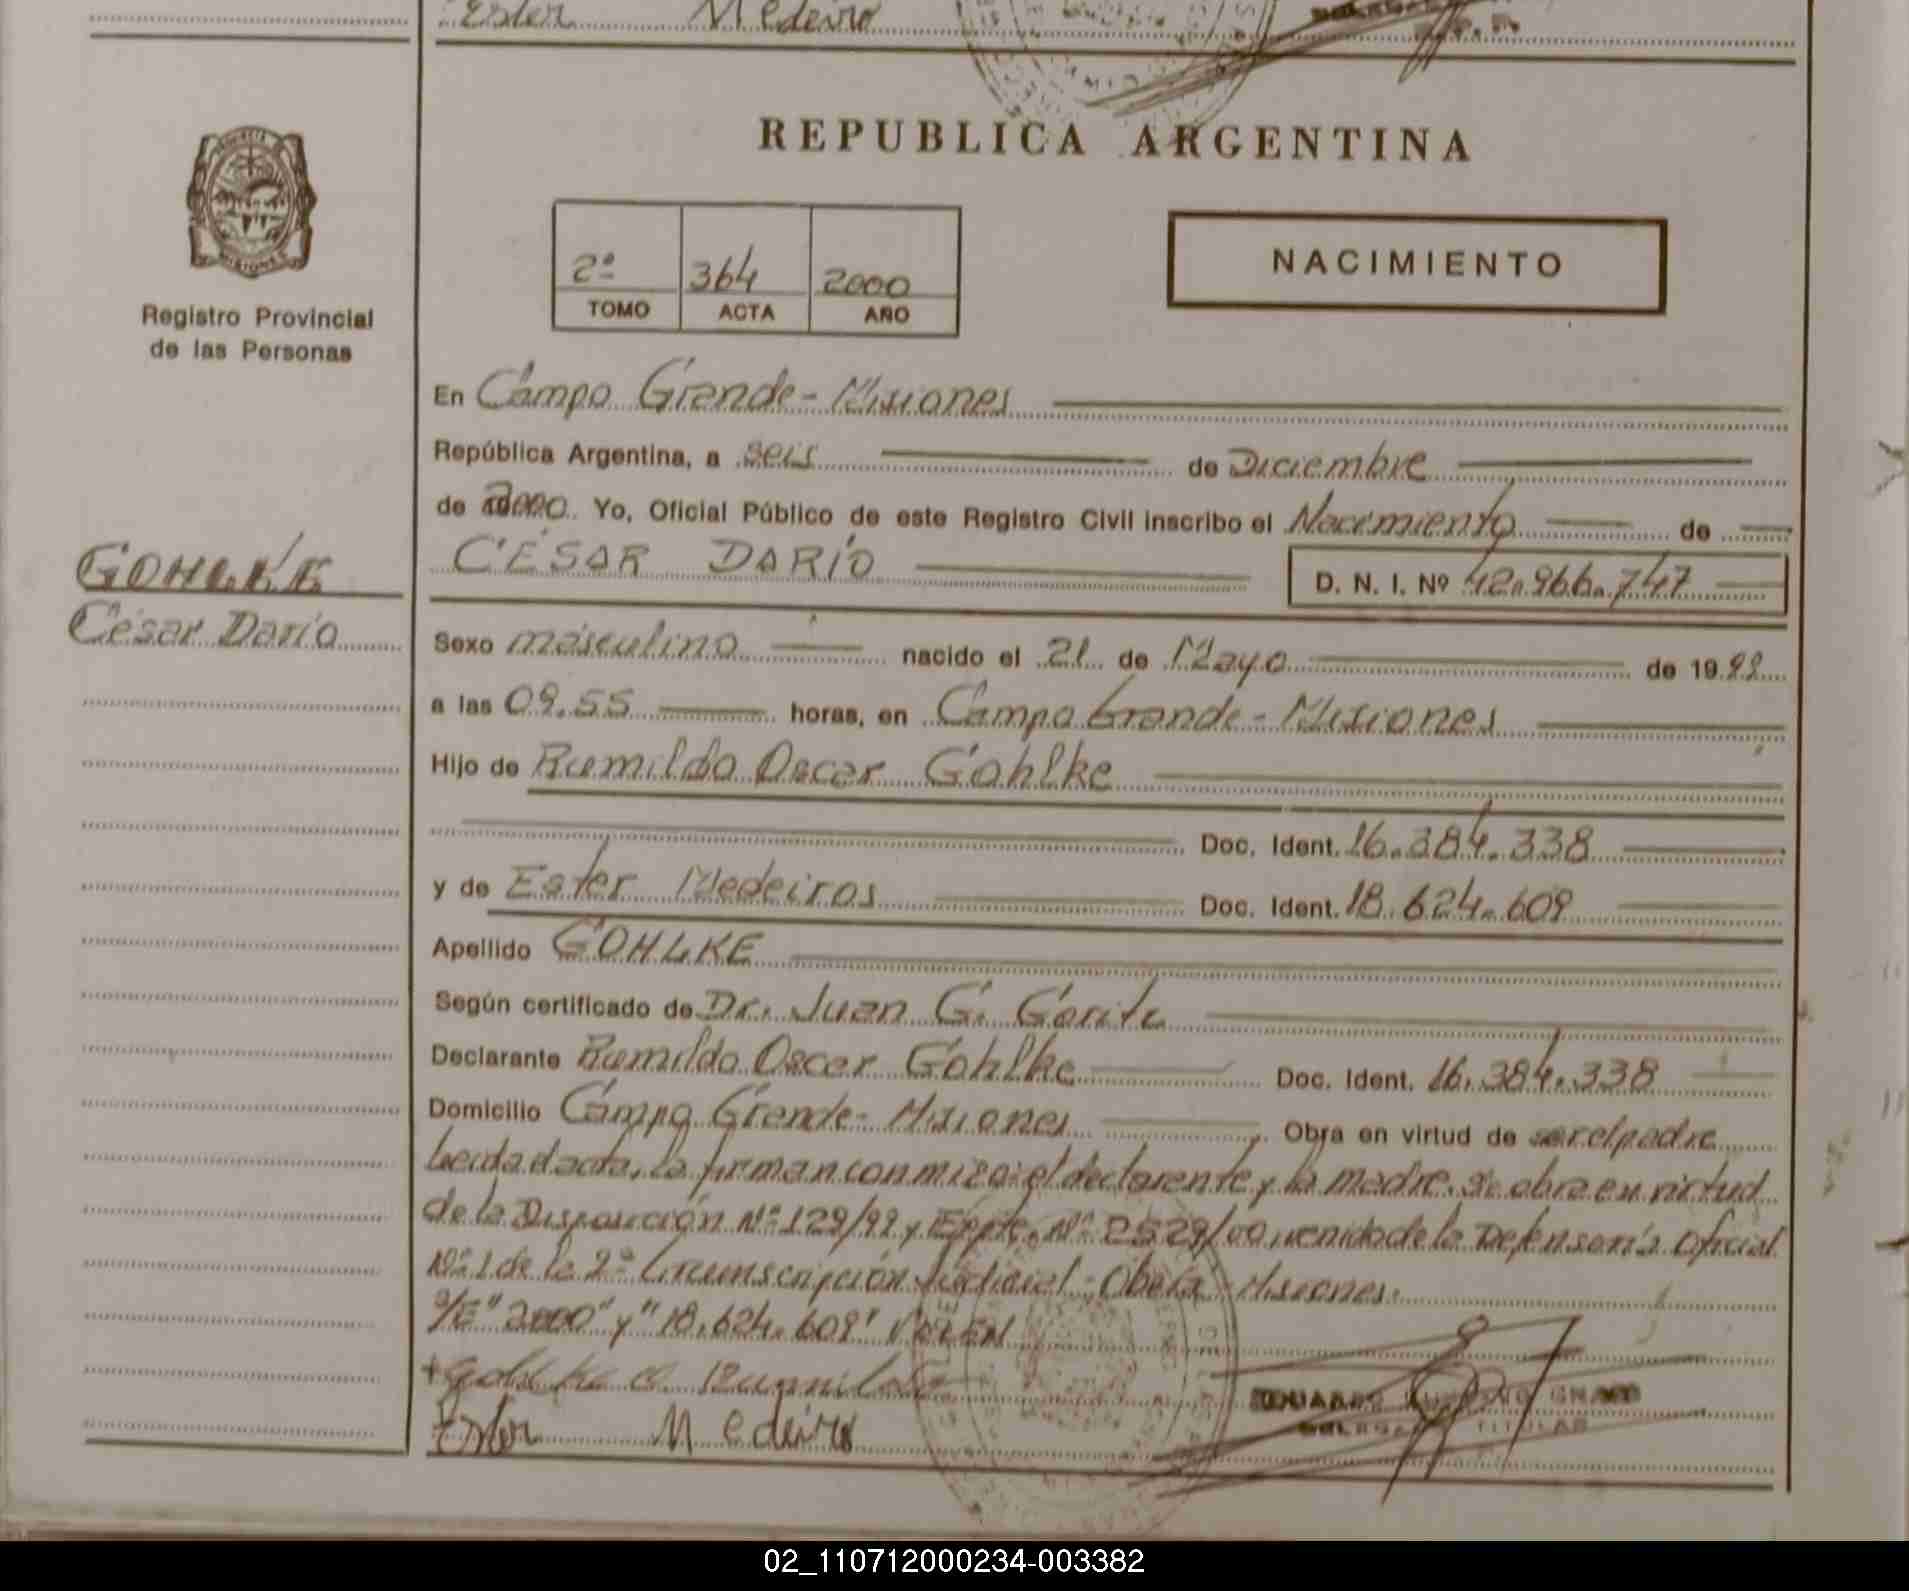 Ester Medeiro
REPUBLICA ARGENTINA
Registro Provincial
de las Personas
2ª 364 2000
TOMO ACTA AÑO
NACIMIENTO
En Campo Grande - Misiones
República Argentina, a seis de Diciembre
de 2000 Yo, Oficial Público de este Registro Civil inscribo el Nacimiento de
GOHLKE
César Darío
CÉSAR DARÍO D. N. I. Nº 42.966.747
Sexo masculino nacido el 21 de Mayo de 1999
a las 09.55 horas, en Campo Grande - Misiones
Hijo de Rumildo Oscar Gohlke
Doc. Ident. 16.384.338
y de Ester Medeiros Doc. Ident. 18.624.609
Apellido GOHLKE
Según certificado de Dr. Juan G.
Declarante Rumildo Oscar Gohlke Doc. Ident. 16.384.338
Domicilio Campo Grande - Misiones Obra en virtud de ser el padre
Leida el acta, la firman conmigo: el declarante y la madre. Se obra en virtud
de la Disposición Nº 129/99 y Expte. Nº 2529/00, venida de la Defensoría Oficial
Nº 1 de la 2ª Circunscripción Judicial - Oberá - Misiones.
S/E "2000" y "18.624.609" VALEN
Gohlke O Rumildo
Ester Medeiro
EDUARDO
DELEGADO TITULAR
02_110712000234-003382